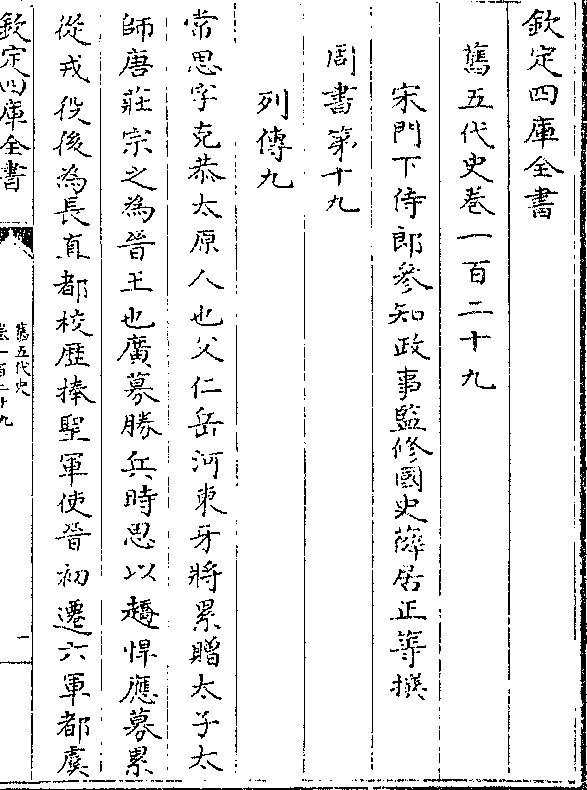 欽定四庫全書
舊五代史卷一百二十九
宋門下侍郎參知政事監修國史薛居正等撰
周書第十九
列傳九
常思字克恭太原人也父仁岳河東牙將累贈太子太
師唐莊宗之為晉王也廣募勝兵時思以趫悍應募累
從戎役後為長直都校歷捧聖軍使晉初遷六軍都虞
欽定四庫全書
舊五代史
卷一百二十九
一